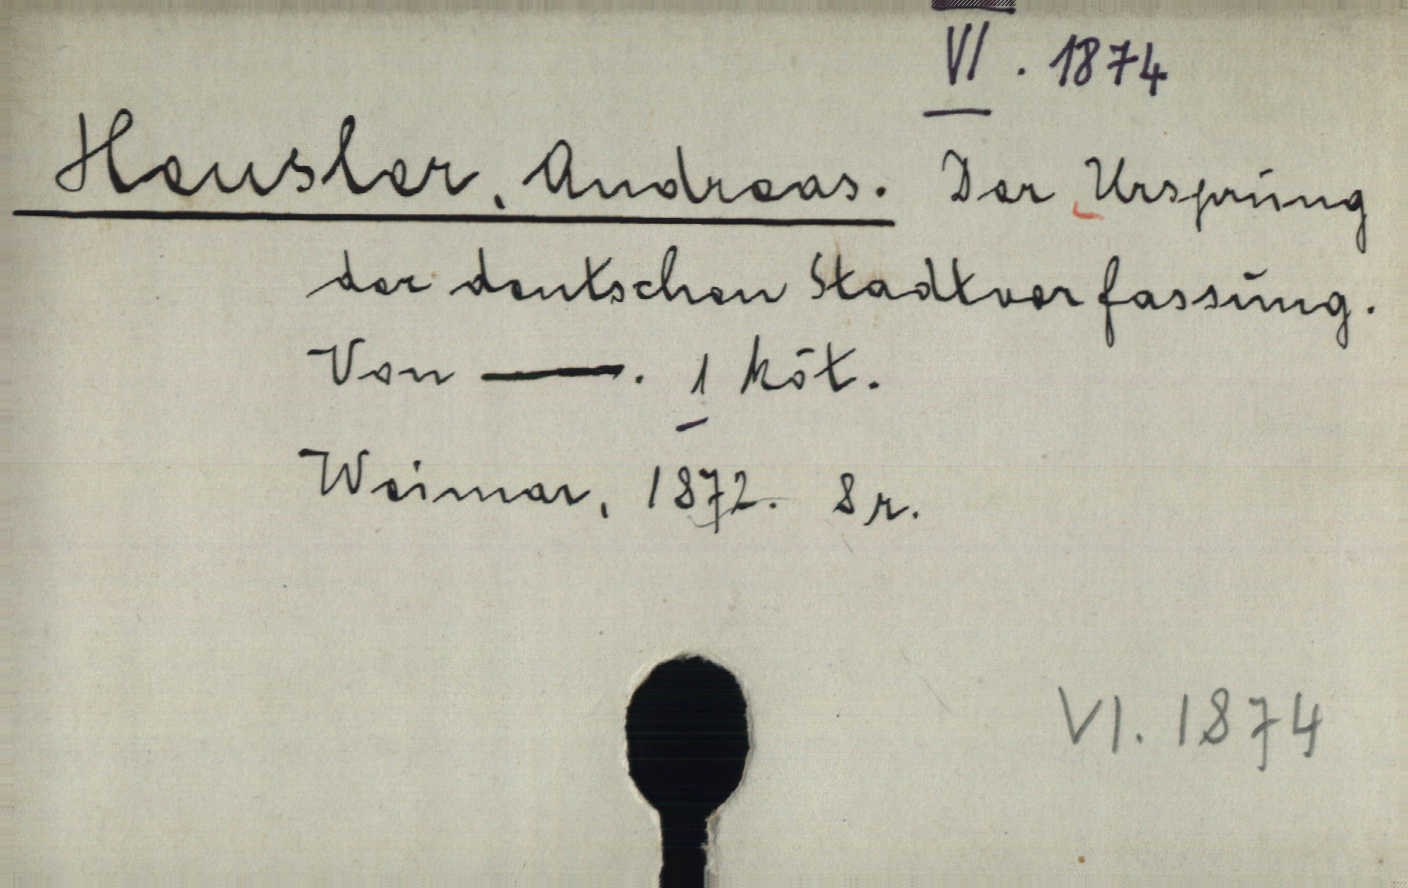 VI. 1874
Heusler, Andreas. Der Ursprung
der deutschen Stadtverfassung.
Von —. 1 köt.
Weimar, 1872. 8r.
VI. 1874